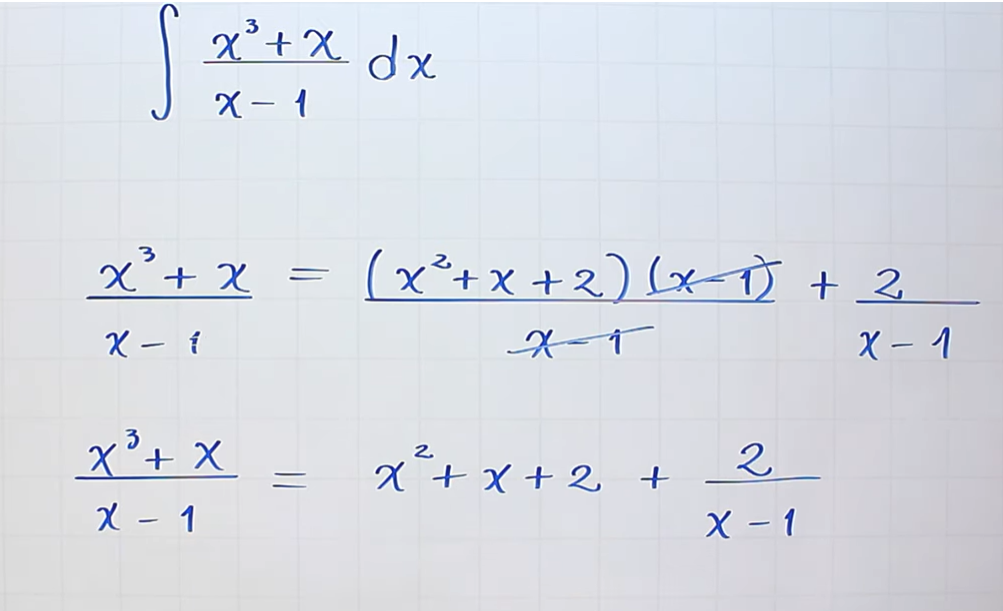 ∫ (x³ + x)/(x - 1) dx
(x³ + x)/(x - 1) = ((x² + x + 2)(x - 1))/(x - 1) + 2/(x - 1)
(x³ + x)/(x - 1) = x² + x + 2 + 2/(x - 1)